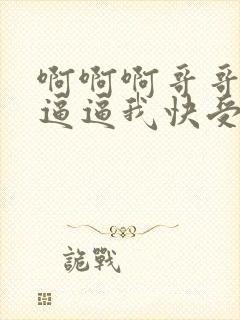 啊啊啊哥哥
逼逼我快受
詭戰